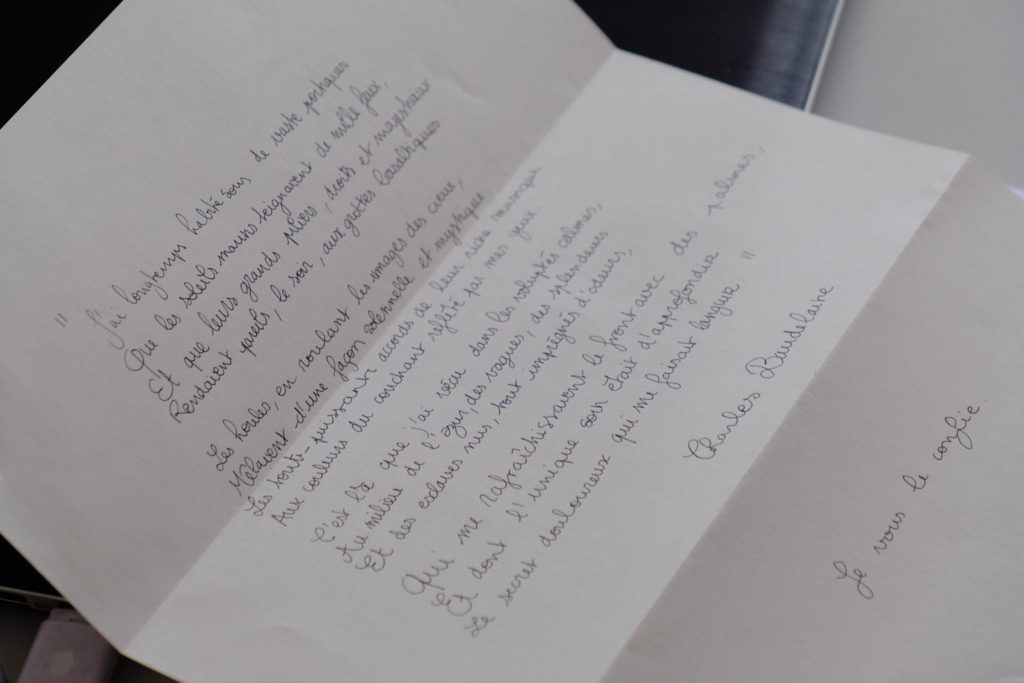 "
J'ai longtemps habité sous de vaste portiques
Que les soleils marins teignaient de mille feux,
Et que leurs grands piliers, droits et majestueux
Rendaient pareils, le soir, aux grottes basaltiques.
Les houles, en roulant les images des cieux,
Mêlaient d'une façon solennelle et mystique
Les touts-puissants accords de leur riche musique
Aux couleurs du couchant reflété par mes yeux.
C'est là que j'ai vécu dans les voluptés calmes,
Au milieu de l'azur, des vagues, des splendeurs
Et des esclaves nus, tout imprégnés d'odeurs,
Qui me rafraîchissaient le front avec des palmes,
Et dont l'unique soin était d'approfondir
Le secret douloureux qui me faisait languir. "
Charles Baudelaire
Je vous le confie.